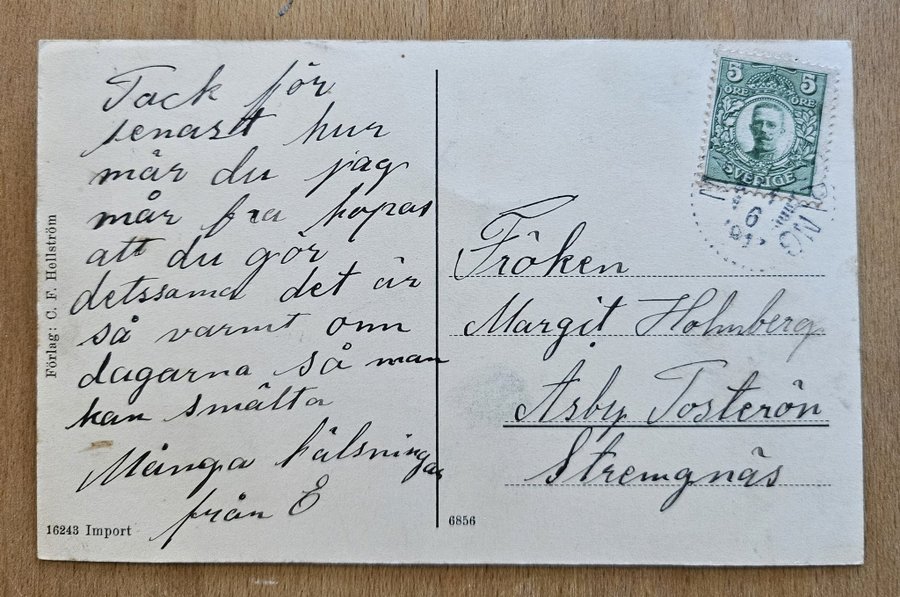 Tack för
senast hur
mår du jag
mår bra hopas
att du gör
detssama det är
så varmt om
dagarna så man
kan smälta
Många hälsningar
från E
Förlag: C. F. Hellström
16243 Import
6856
5 5
ÖRE ÖRE
SVERIGE
6
Fröken
Margit Holmberg
Åsby Tosterön
Stremgnäs